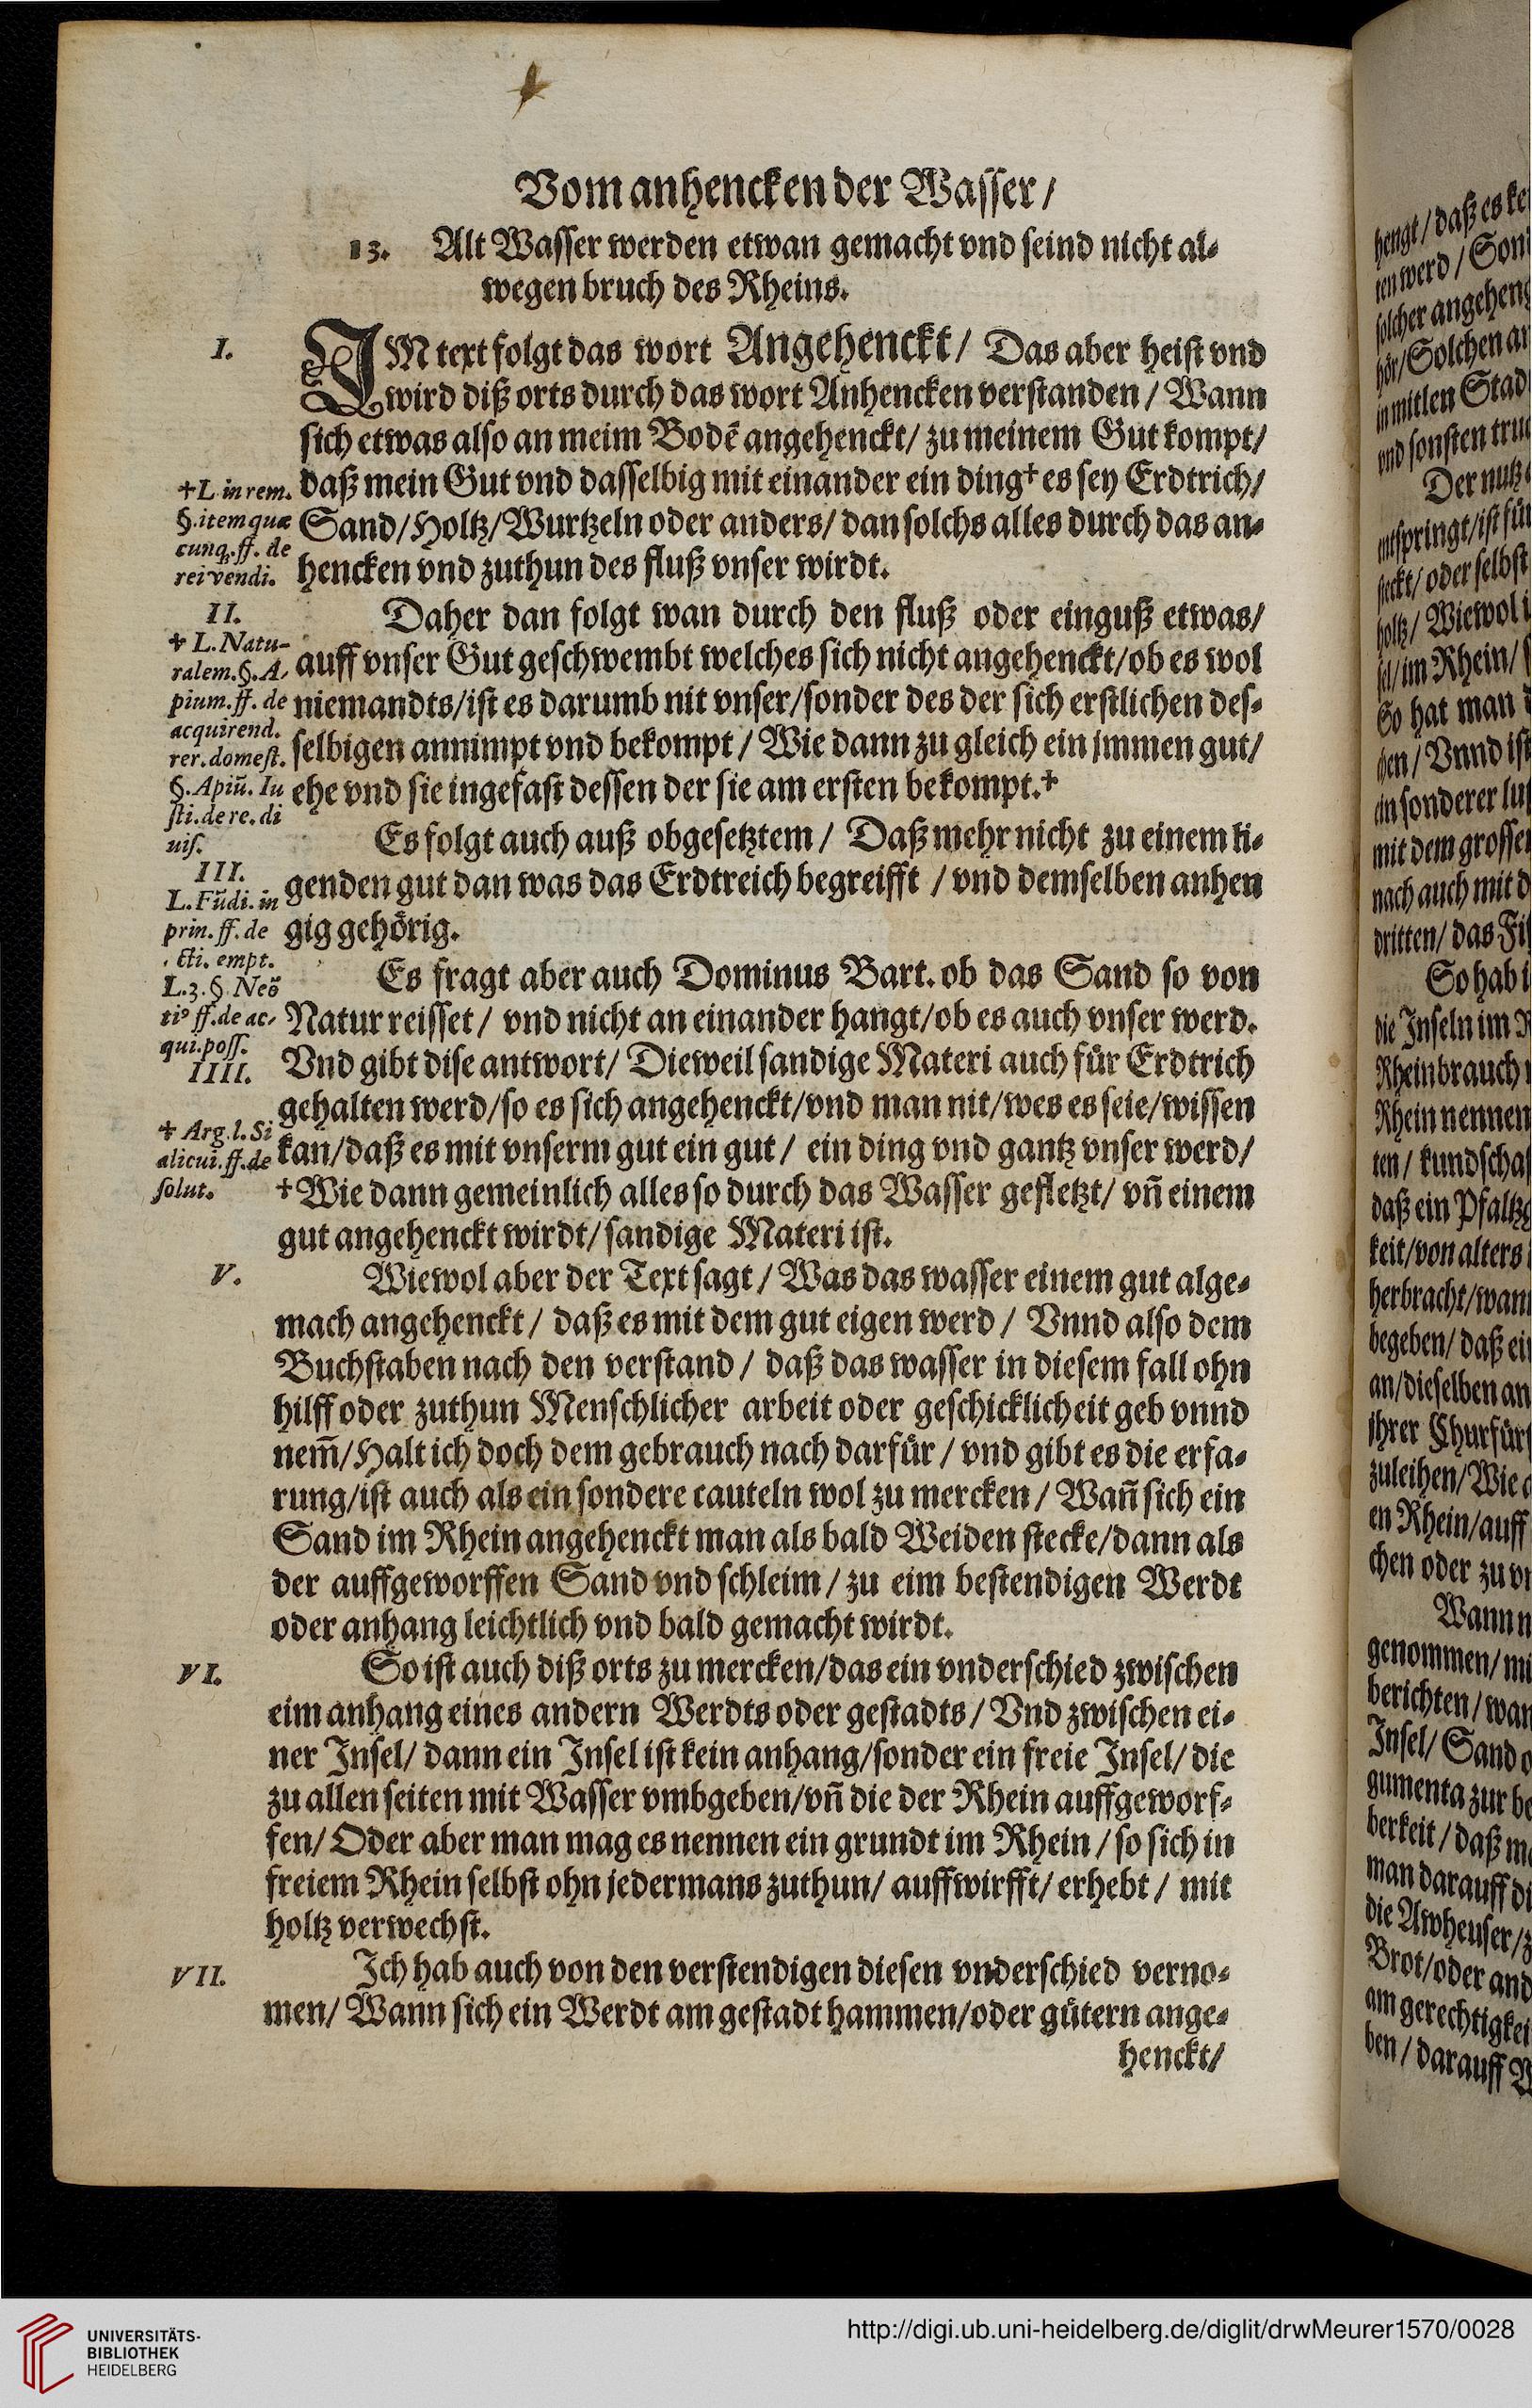 Vom anhencken der Wasser/
13. Alt Wasser werden etwan gemacht vnd seind nicht al-
wegen bruch des Rheins.
I.
IM text folgt das wort Angehenckt/ Das aber heist vnd
wird diß orts durch das wort Anhencken verstanden/ Wann
sich etwas also an meim Bodẽ angehenckt/ zu meinem Gut kompt/
daß mein Gut vnd dasselbig mit einander ein ding† es sey Erdtrich/
Sand/ Holtz/ Wurtzeln oder anders/ dan solchs alles durch das an-
hencken vnd zuthun des fluß vnser wirdt.
†L in rem.
§. item quæ
cunq;. ff. de
rei vendi.
II.
Daher dan folgt wan durch den fluß oder einguß etwas/
auff vnser Gut geschwembt welches sich nicht angehenckt/ ob es wol
niemandts/ ist es darumb nit vnser/ sonder des der sich erstlichen des-
selbigen annimpt vnd bekompt/ Wie dann zu gleich ein jmmen gut/
ehe vnd sie ingefast dessen der sie am ersten bekompt.†
† L. Natu-
ralem. §. A-
pium. ff. de
acquirend.
rer. domest.
§. Apiũ. Iu
sti. de re. di
uis.
Es folgt auch auß obgesetztem/ Daß mehr nicht zu einem li-
genden gut dan was das Erdtreich begreifft/ vnd demselben anhen
gig gehörig.
III.
L. Fũdi. in
prin. ff. de
cti. empt.
L. 3. § Neõ
ti⁹ ff. de ac-
qui. poss.
IIII.
Es fragt aber auch Dominus Bart. ob das Sand so von
Natur reisset/ vnd nicht an einander hangt/ ob es auch vnser werd.
Vnd gibt dise antwort/ Dieweil sandige Materi auch für Erdtrich
gehalten werd/ so es sich angehenckt/ vnd man nit/ wes es seie/ wissen
kan/ daß es mit vnserm gut ein gut/ ein ding vnd gantz vnser werd/
† Wie dann gemeinlich alles so durch das Wasser gefletzt/ vñ einem
gut angehenckt wirdt/ sandige Materi ist.
† Arg. l. Si
alicui. ff. de
solut.
V.
Wiewol aber der Text sagt/ Was das wasser einem gut alge-
mach angehenckt/ daß es mit dem gut eigen werd/ Vnnd also dem
Buchstaben nach den verstand/ daß das wasser in diesem fall ohn
hilff oder zuthun Menschlicher arbeit oder geschicklicheit geb vnnd
nem̃/ Halt ich doch dem gebrauch nach darfür/ vnd gibt es die erfa-
rung/ ist auch als ein sondere cauteln wol zu mercken/ Wañ sich ein
Sand im Rhein angehenckt man als bald Weiden stecke/ dann als
der auffgeworffen Sand vnd schleim/ zu eim bestendigen Werdt
oder anhang leichtlich vnd bald gemacht wirdt.
VI.
So ist auch diß orts zu mercken/ das ein vnderschied zwischen
eim anhang eines andern Werdts oder gestadts/ Vnd zwischen ei-
ner Insel/ dann ein Insel ist kein anhang/ sonder ein freie Insel/ die
zu allen seiten mit Wasser vmbgeben/ vñ die der Rhein auffgeworf-
fen/ Oder aber man mag es nennen ein grundt im Rhein/ so sich in
freiem Rhein selbst ohn jedermans zuthun/ auffwirfft/ erhebt/ mit
holtz verwechst.
VII.
Ich hab auch von den verstendigen diesen vnderschied verno-
men/ Wann sich ein Werdt am gestadt hammen/ oder gütern ange-
henckt/
hengt/ daß es
werd/ Son
solcher angeheng
hör/ Solchen an
in mitlen Stad
vnd sonsten tru
Der nutz
entspringt/ ist für
steckt/ oder selbst
holtz/ Wiewol i
sel/ im Rhein/
So hat man
chen/ Vnnd ist
ein sonderer lu
mit dem grosse
nach auch mit d
dritten/ das Fis
So hab i
die Inseln im R
Rheinbrauch
Rhein nennen
ten/ kundscha
daß ein Pfaltzg
keit/ von alters
herbracht/ wann
begeben/ daß ein
an/ dieselben an
ihrer Churfür
zuleihen/ Wie
en Rhein/ auff
chen oder zu
Wann n
genommen/ mi
berichten/ wan
Insel/ Sand o
gumenta zur be
berkeit/ daß m
man darauff di
die Awheuser/ z
Brot/ oder and
am gerechtigkei
ben/ darauff
UNIVERSITÄTS-
BIBLIOTHEK
HEIDELBERG
http://digi.ub.uni-heidelberg.de/diglit/drwMeurer1570/0028